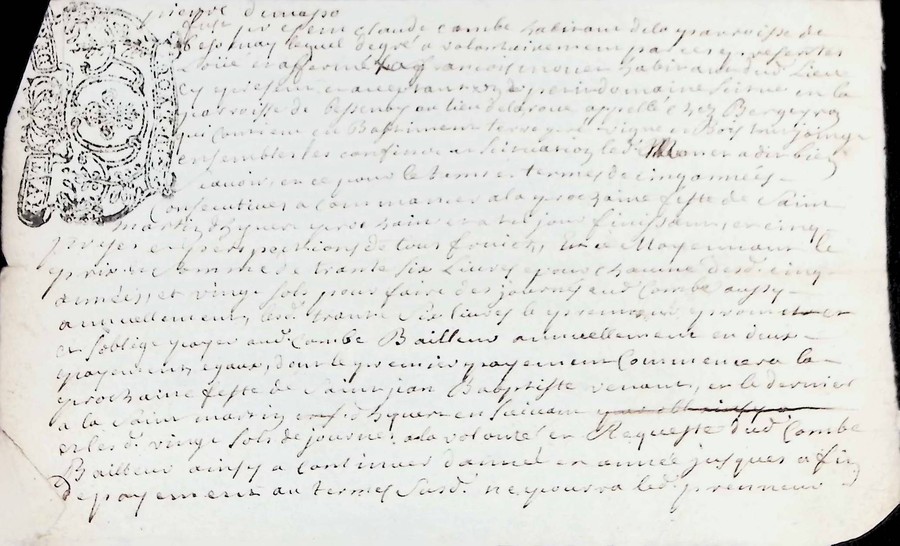 pierre
fut present Claude Combe habitant de la parroisse de
Bessenay lequel de gré a volontairement par ces presentes
loüé et affermé a françois habitant dud. Lieu
cy present et acceptant un domaine scittué en la
parroisse de Bessenay au lieu de appellé chez Bergeron
qui Consiste en Bastiment terre pré vigne et Bois
ensembles les confins et scituation led. a dit bien
sçavoir, et ce pour le tems et termes de cinq années
Consecutives a commancer a la prochaine feste de Saint
martin d'hyvert prochain et a tel jour finissant, et cinq
prises et perceptions de tous fruicts, Et ce Moyennant le
prix et Somme de trante six Livres pour chacune desd. cinq
années, et vingt sols pour faire des journés aud. Combe aussy
annuellement, lesd. trante six livres le preneur promet et
et s'oblige payer aud. Combe Bailleur annuellement en deux
payements egaux, dont le premier payement Commencera la
prochaine feste de Saint jean Baptiste venant, et le dernier
a la Saint martin d'hyvert en suivant
et lesd. vingt sols de journé, a la volonté et Requeste dud. Combe
Bailleur ainsy a continuer d'anné en année jusques a fin
de payement au termes susd. ne pourra led. preneur